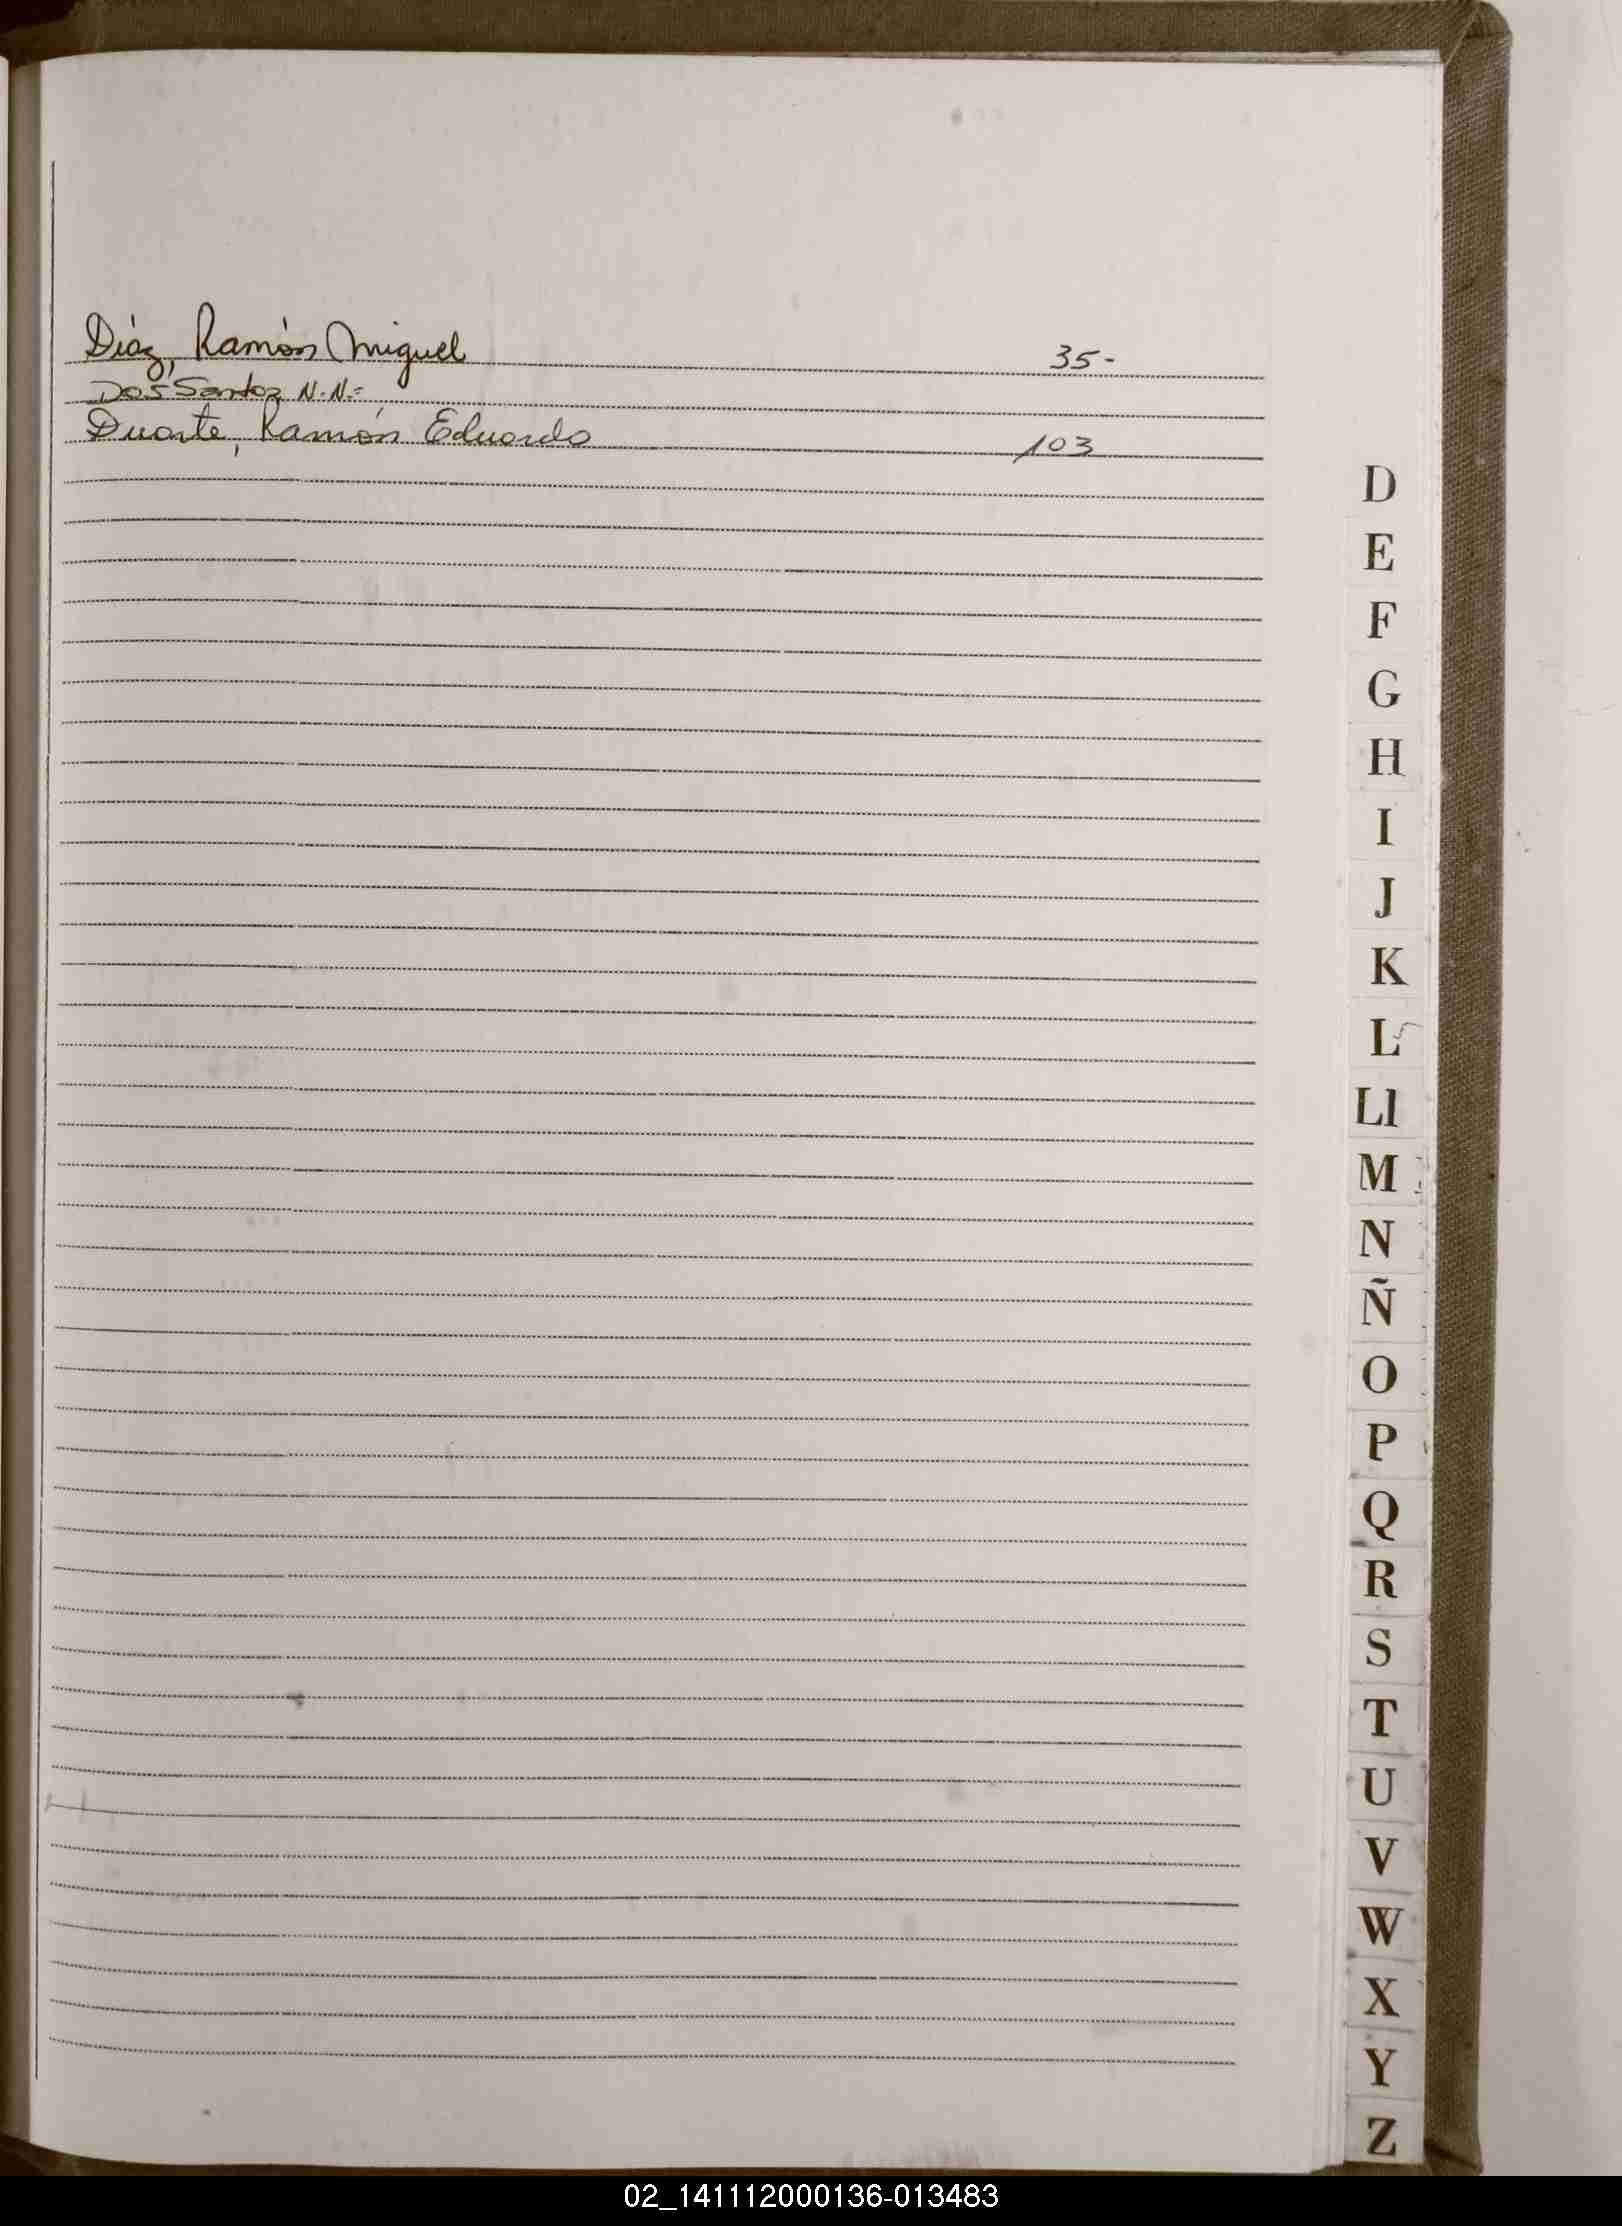 Díaz, Ramón Miguel 35-
Dos Santoz N.N.=
Duarte, Ramón Eduardo 103
D
E
F
G
H
I
J
K
L
Ll
M
N
Ñ
O
P
Q
R
S
T
U
V
W
X
Y
Z
02_141112000136-013483